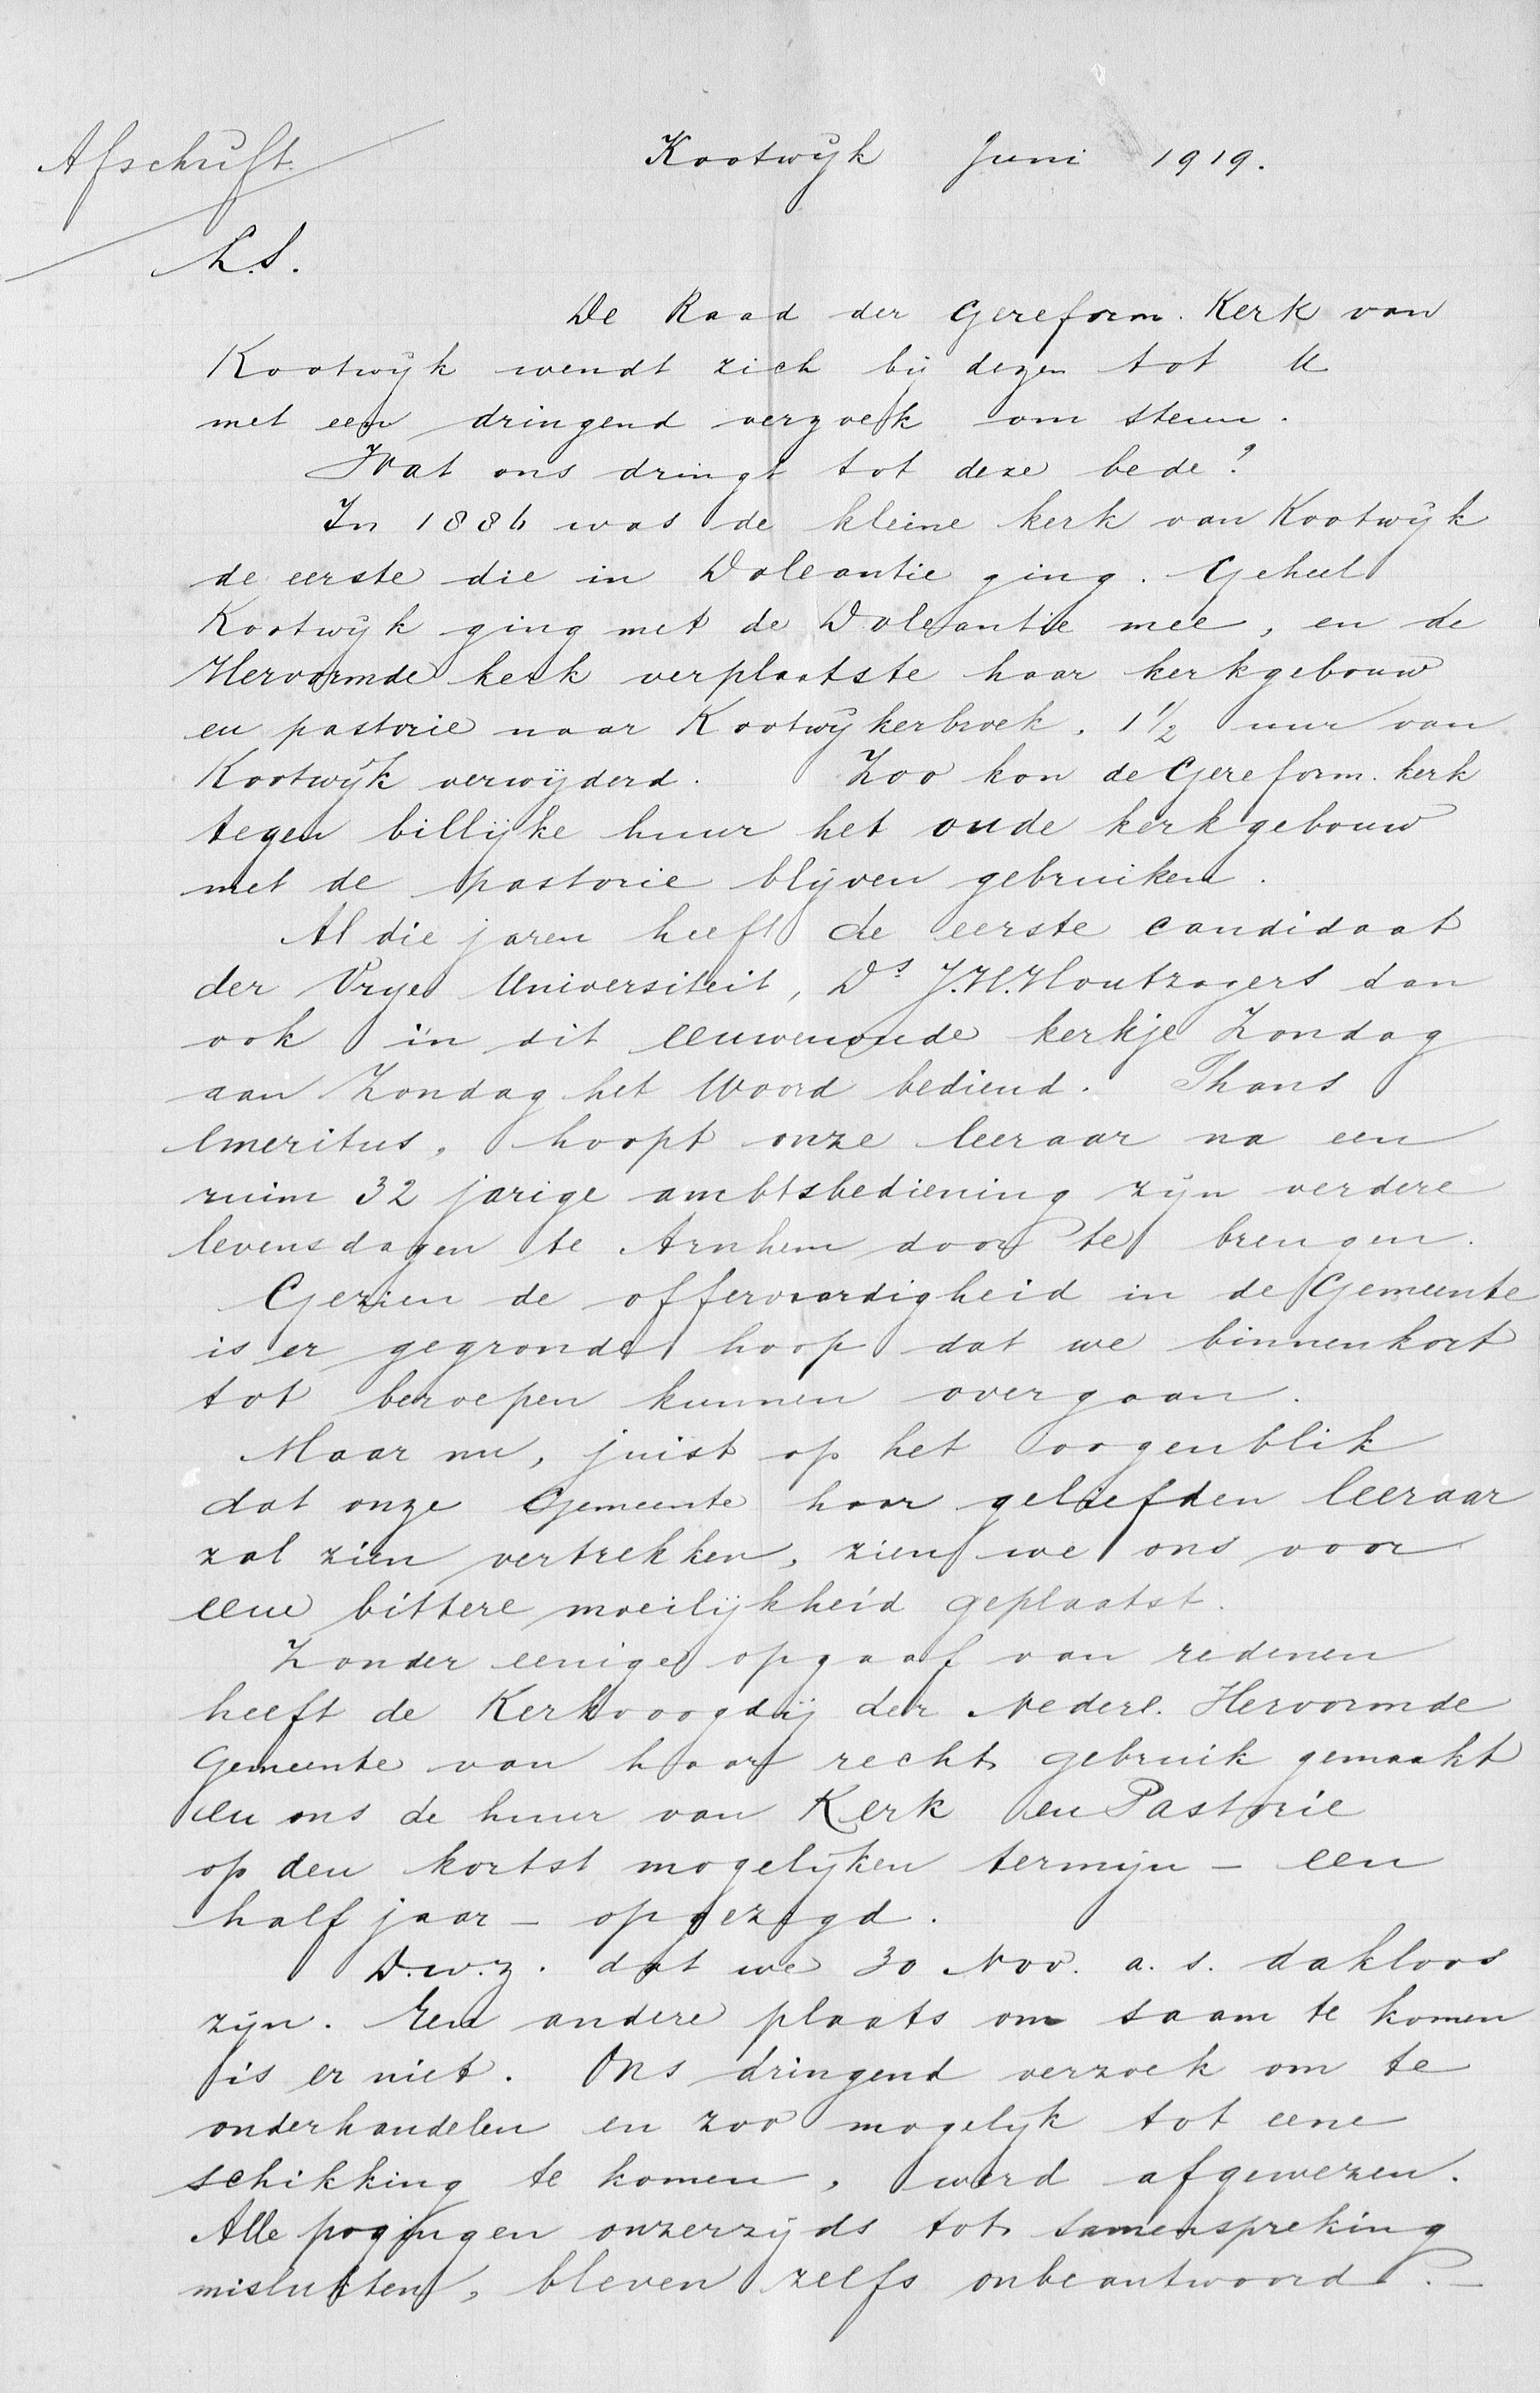 Afschrift.
Kootwijk Juni 1919.
L.S.
De Raad der Gereform. Kerk van
Kootwijk wendt zich bij dezen tot U
met een dringend verzoek om steun.
Wat ons dringt tot deze bede?
In 1886 was de kleine kerk van Kootwijk
de eerste die in Doleantie ging. Geheel
Kootwijk ging met de Doleantie meê, en de
Hervormde kerk verplaatste haar kerkgebouw
en pastorie naar Kootwijkerbroek, 1½ uur van
Kootwijk verwijderd. Zoo kon de Gereform. kerk
tegen billijke huur het oude kerkgebouw
met de pastorie blijven gebruiken.
Al die jaren heeft de eerste candidaat
der Vrije Universiteit, Ds. J.H. Houtzagers dan
ook in dit eeuwenoude kerkje Zondag
aan Zondag het Woord bediend. Thans
emeritus, hoopt onze leeraar na een
ruim 32 jarige ambtsbediening zijn verdere
levensdagen te Arnhem door te brengen.
Gezien de offervaardigheid in de Gemeente
is er gegronde hoop dat we binnenkort
tot beroepen kunnen overgaan.
Maar nu, juist op het oogenblik
dat onze Gemeente haar geliefden leeraar
zal zien vertrekken, zien we ons voor
eene bittere moeilijkheid geplaatst.
Zonder eenige opgaaf van redenen
heeft de Kerkvoogdij der Nederl. Hervormde
Gemeente van haar recht gebruik gemaakt
en ons de huur van Kerk en Pastorie
op den kortst mogelijken termijn - een
half jaar - opgezegd.
D.w.z. dat we 30 Nov. a.s. dakloos
zijn. Een andere plaats om saam te komen
is er niet. Ons dringend verzoek om te
onderhandelen en zoo mogelijk tot eene
schikking te komen, werd afgewezen.
Alle pogingen onzerzijds tot samenspreking
mislukten, bleven zelfs onbeantwoord. -